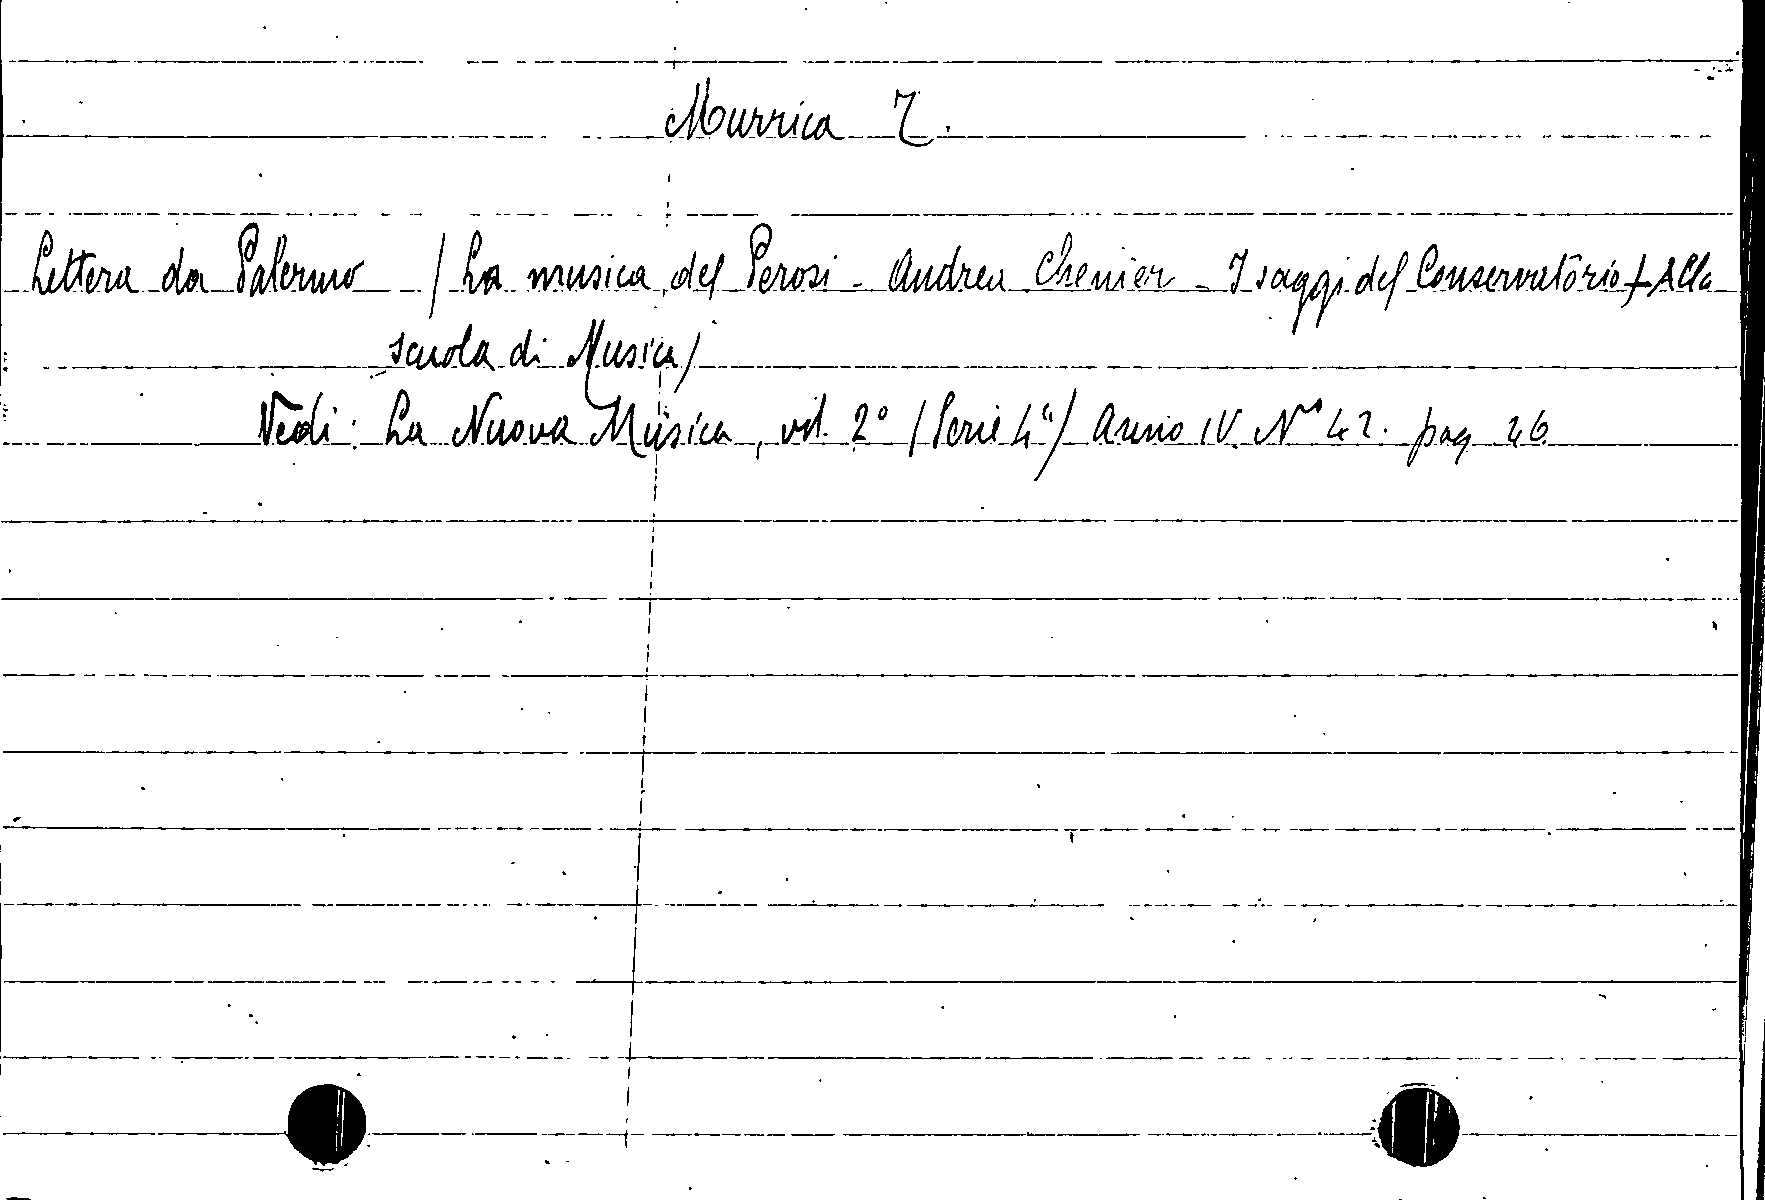 Murrica I.
Lettera da Palermo / La musica del Perosi - Andrea Chenier - I saggi del Conservatorio + Alla
scuola di Musica /
Vedi: La Nuova Musica, vol. 2° / Serie 4ª / Anno IV. N° 42. pag. 46